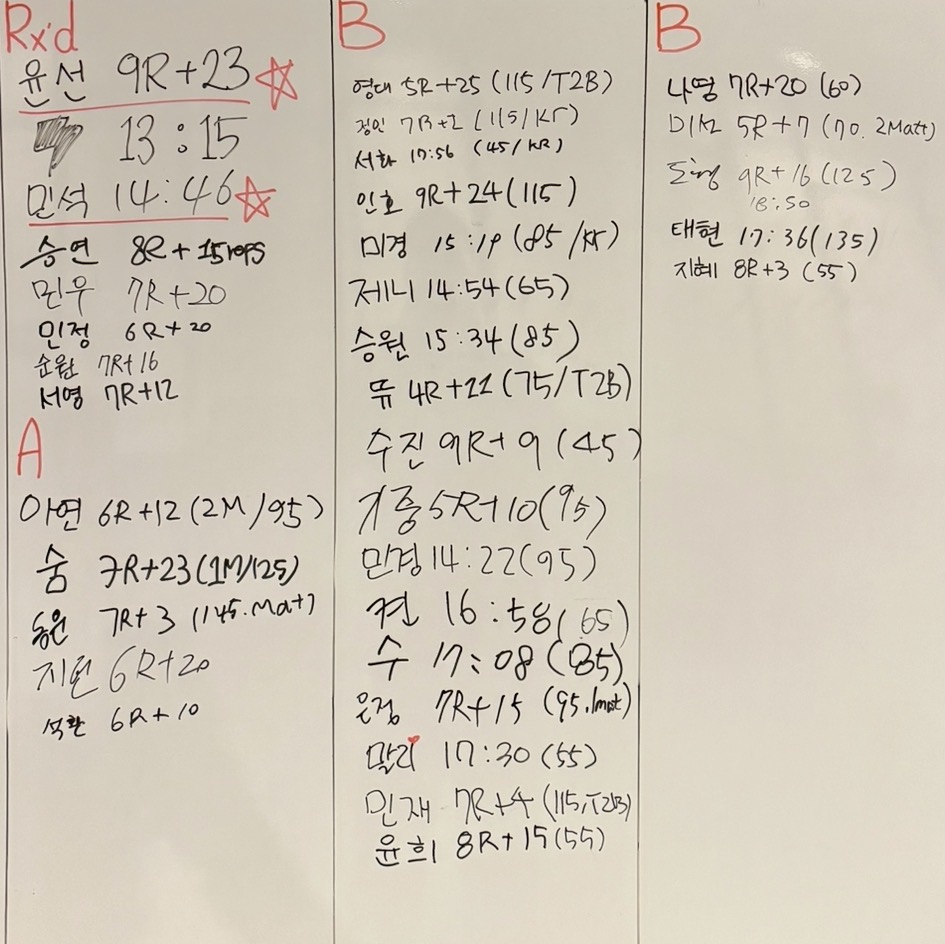 Rx'd
윤선 9R+23
13:15
민석 14:46
승연 8R+15reps
민우 7R+20
민정 6R+20
순원 7R+16
서영 7R+12
A
아연 6R+12 (2M/95)
숨 7R+23 (1M/125)
동윤 7R+3 (145.Mat)
지원 6R+20
석환 6R+10
B
영대 5R+25 (115/T2B)
정인 7R+2 (115/KR)
서화 17:56 (45/KR)
인호 9R+24 (115)
미경 15:19 (85/KR)
제니 14:54 (65)
승원 15:34 (85)
뜌 4R+11 (75/T2B)
수진 9R+9 (45)
기흥 5R+10 (95)
민경 14:22 (95)
켠 16:58 (65)
수 17:08 (85)
은정 7R+15 (95.1mat)
말리 17:30 (55)
민재 7R+4 (115/T2B)
윤희 8R+15 (55)
B
나영 7R+20 (60)
5R+7 (70.2Matt)
9R+16 (125)
18:50
태현 17:36 (135)
지혜 8R+3 (55)